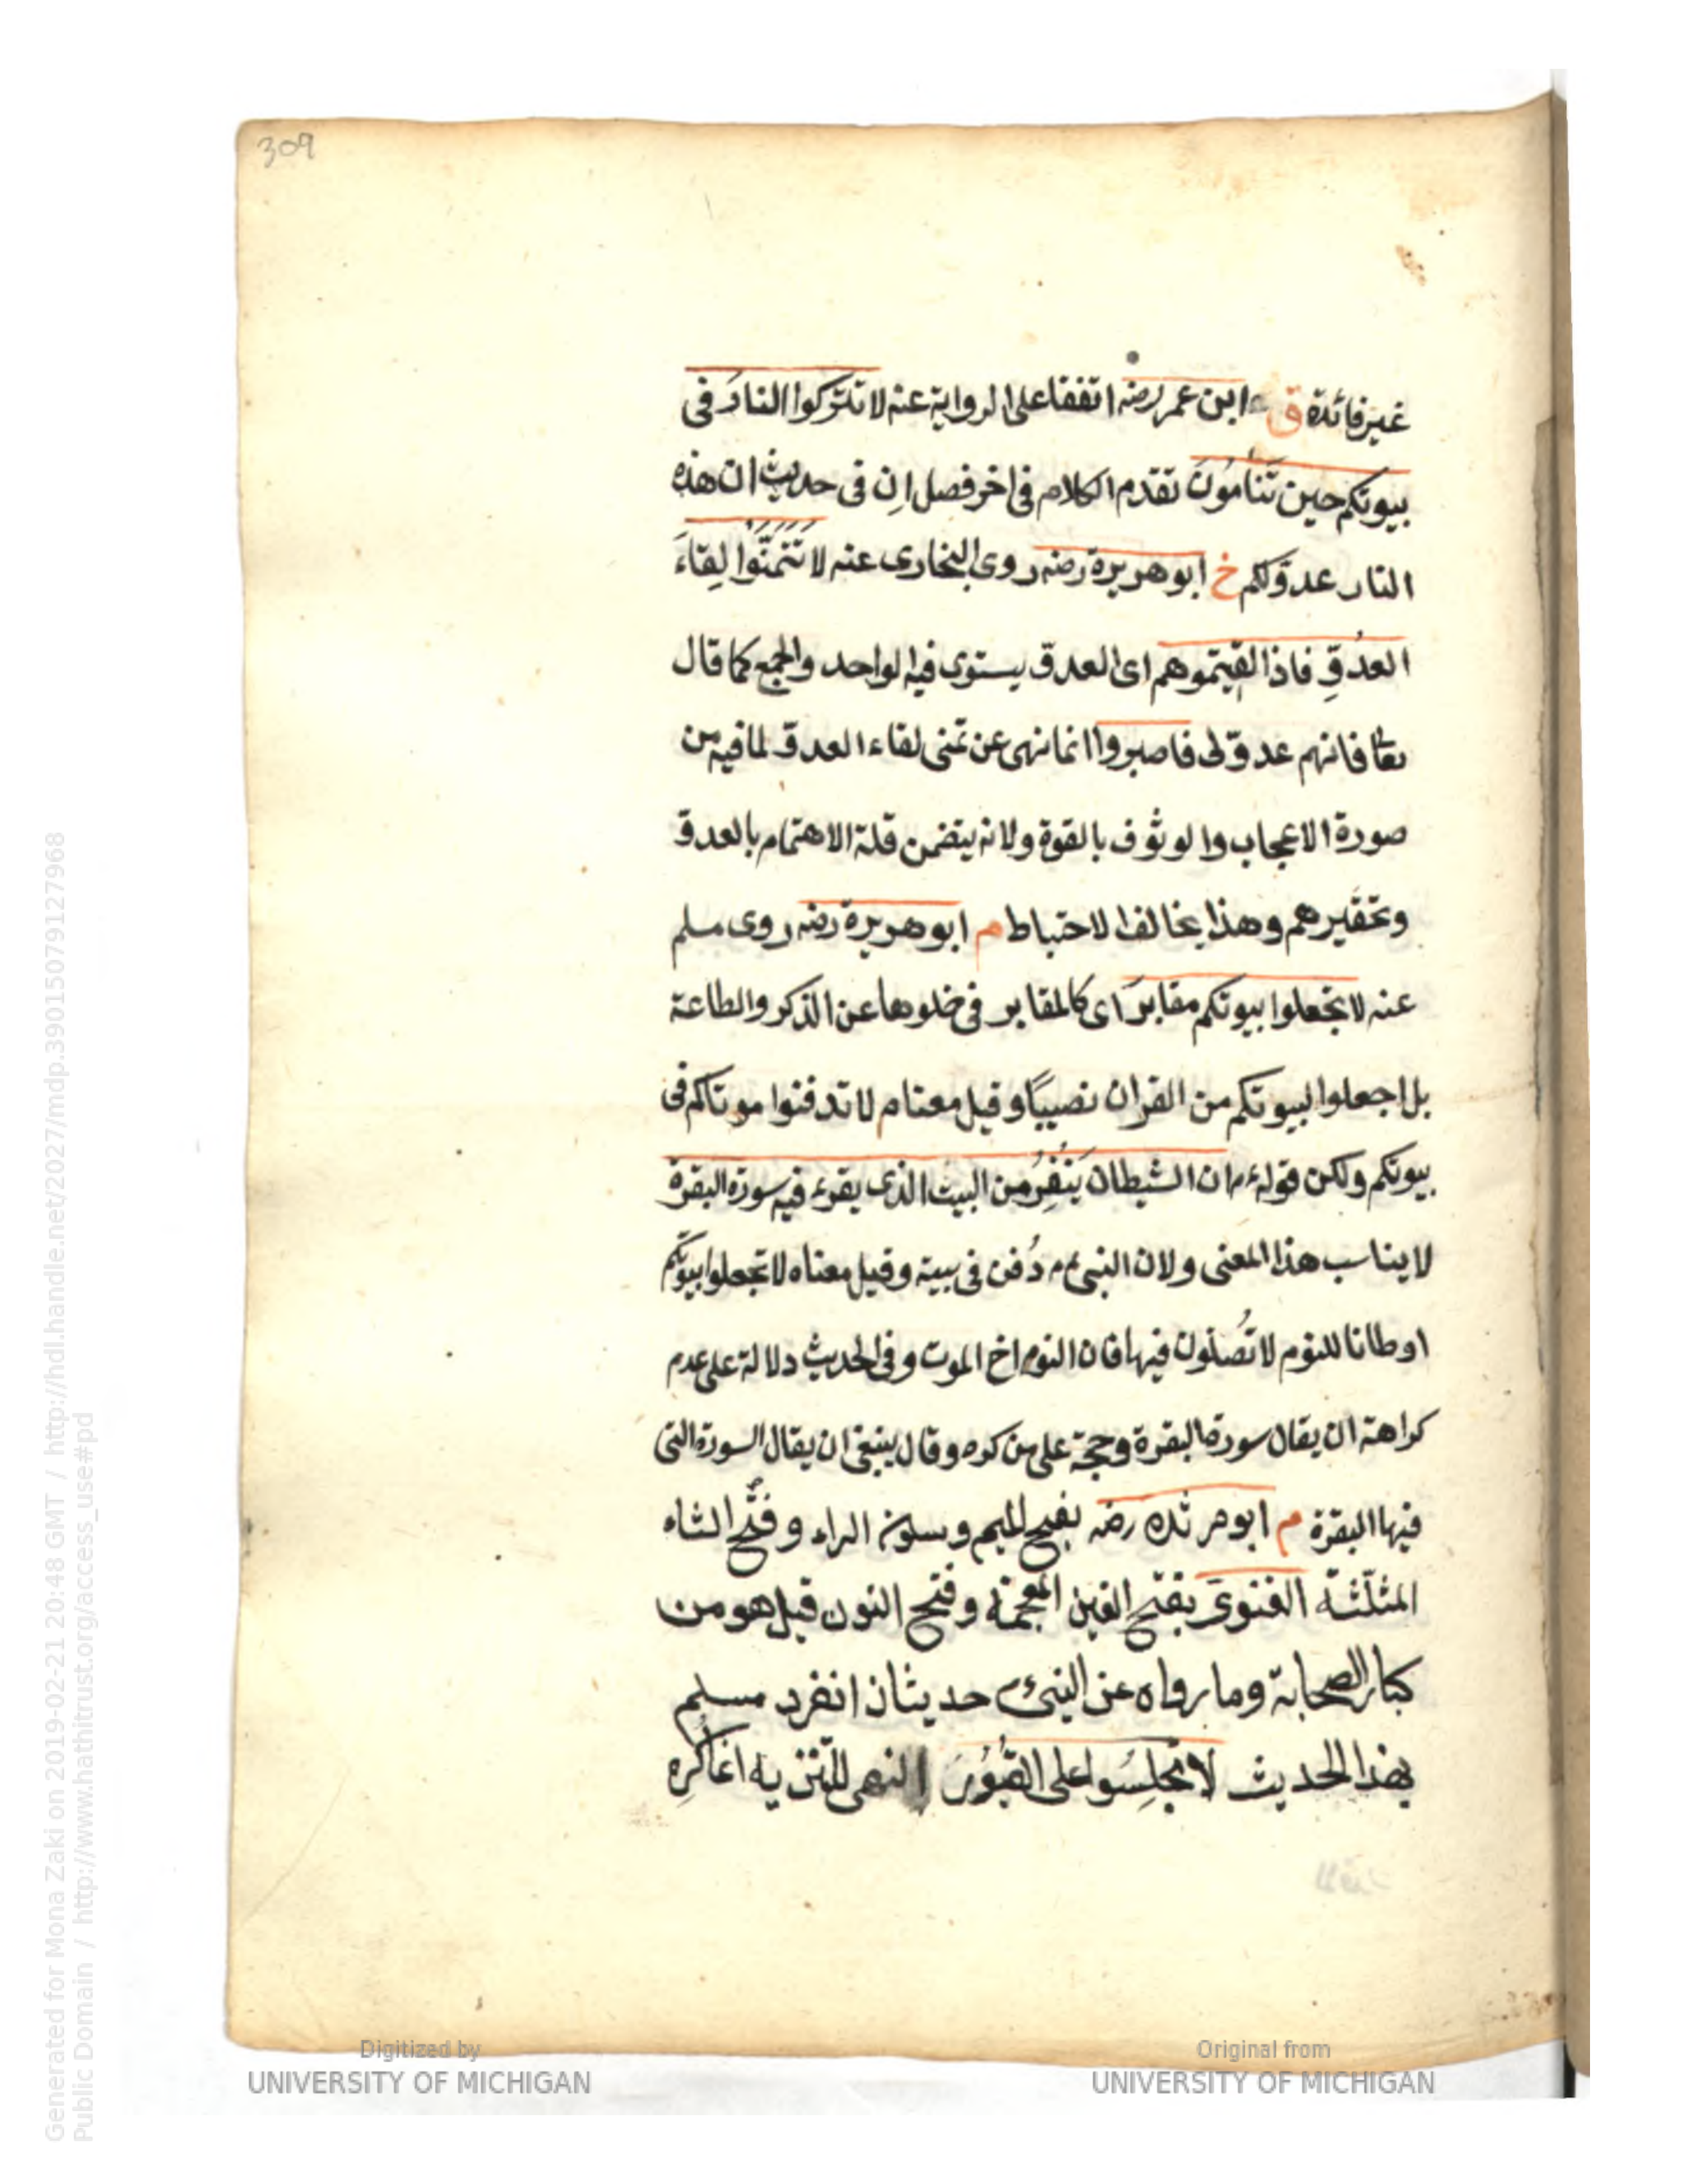 309
غير فائدة ق ابن عمر رضه اتفقا على الرواية عنه لا تتركوا النار فى
بيوتكم حين تنامون تقدم الكلام فى اخر فصل ان فى حديث ان هذه
النار عدوّ لكم خ ابو هريرة رضه روى البخارى عنه لا تتمنّوا لقاءَ
العدُوِّ فاذا لقيتموهم اى العدوّ يستوى فيه الواحد والجمع كما قال
تعا فانهم عدوّ لى فاصبروا انما نهى عن تمنى لقاء العدوّ لما فيه من
صورة الاعجاب والوثوق بالقوة ولانه يتضمن قلة الاهتمام بالعدوّ
وتحقيرهم وهذا يخالف الاحتياط م ابو هريرة رضه روى مسلم
عنه لا تجعلوا بيوتكم مقابرَ اى كالمقابر فى خلوها عن الذكر والطاعة
بل اجعلوا لبيوتكم من القران نصيبًا وقيل معناه لا تدفنوا موتاكم فى
بيوتكم ولكن قوله ءم ان الشيطان يَنْفِرُ من البيت الذى يقرء فيه سورة البقرة
لا يناسب هذا المعنى ولان النبى ءم دُفن فى بيته وقيل معناه لا تجعلوا بيوتكم
اوطانا للنوم لا تُصلون فيها فان النوم اخ الموت وفى الحديث دلالة على عدم
كراهة ان يقال سورة البقرة وحجة على من كره وقال ينبغى ان يقال السورة التى
فيها البقرة م ابو مرثده رضه بفتح الميم وسكون الراء وفتح الثاء
المثلّثة الغنوىَ بفتح الغين المعجمة وفتح النون قيل هو من
كبار الصحابة وما رواه عن النبى ءم حديثان انفرد مسلم
بهذا الحديث لا تجلِسُوا على القبُورِ النهى للتنزيه انما كره
Digitized by
UNIVERSITY OF MICHIGAN
Original from
UNIVERSITY OF MICHIGAN
Generated for Mona Zaki on 2019-02-21 20:48 GMT / http://hdl.handle.net/2027/mdp.39015079127968
Public Domain / http://www.hathitrust.org/access_use#pd